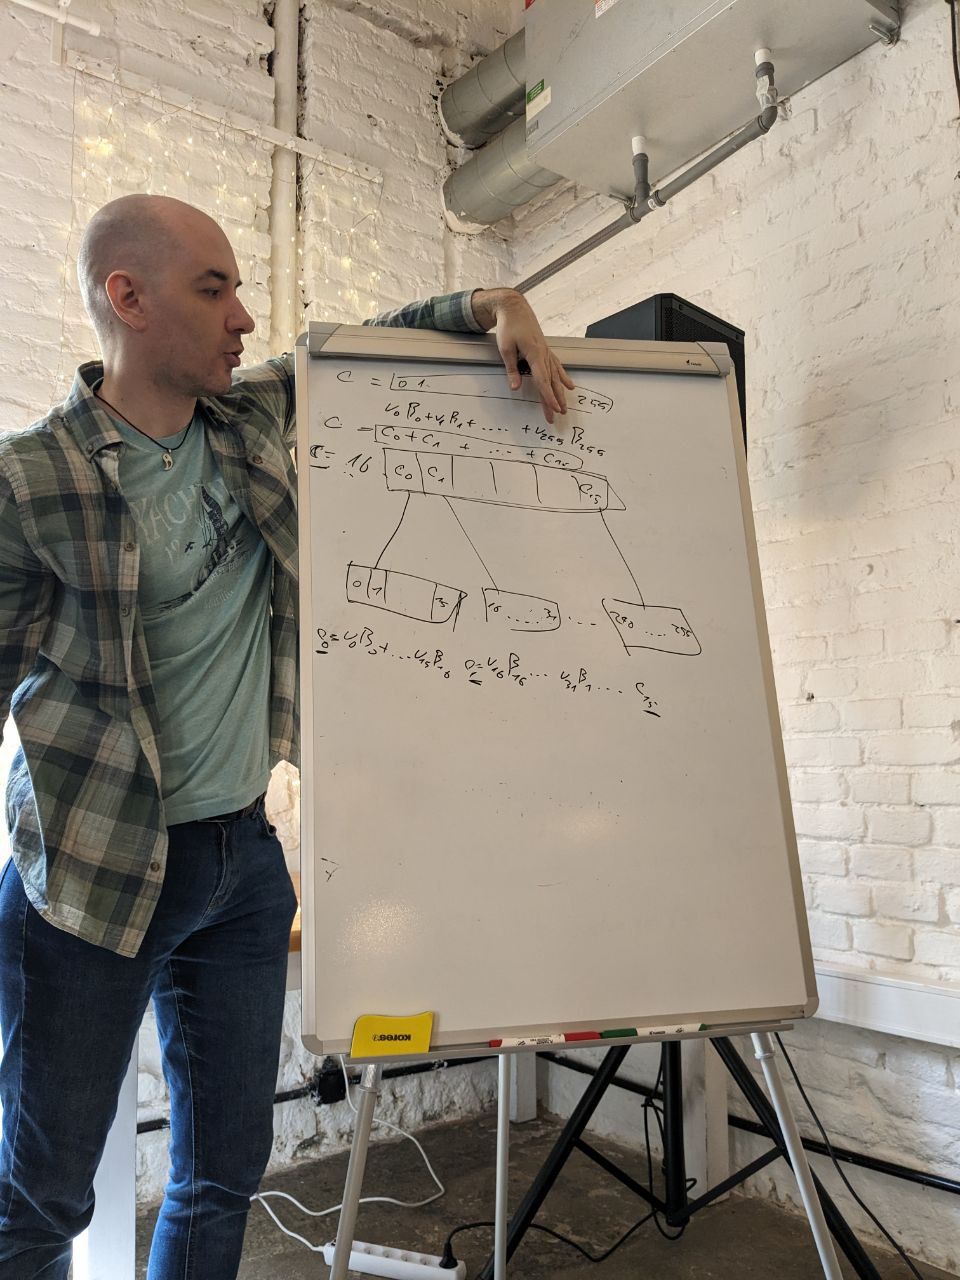 C = 0 1 ... 255
v₀B₀+v₁B₁+....+v₂₅₅B₂₅₅
C = C₀+C₁ + ... + C₁₅
C = 16 C₀ C₁ C₁₅
0 1 15 16......31 .... 240 .... 255
C₀=v₀B₀+...v₁₅B₁₅ C₁=v₁₆B₁₆... v₃₁B₃₁.... C₁₅
YACHT
kores